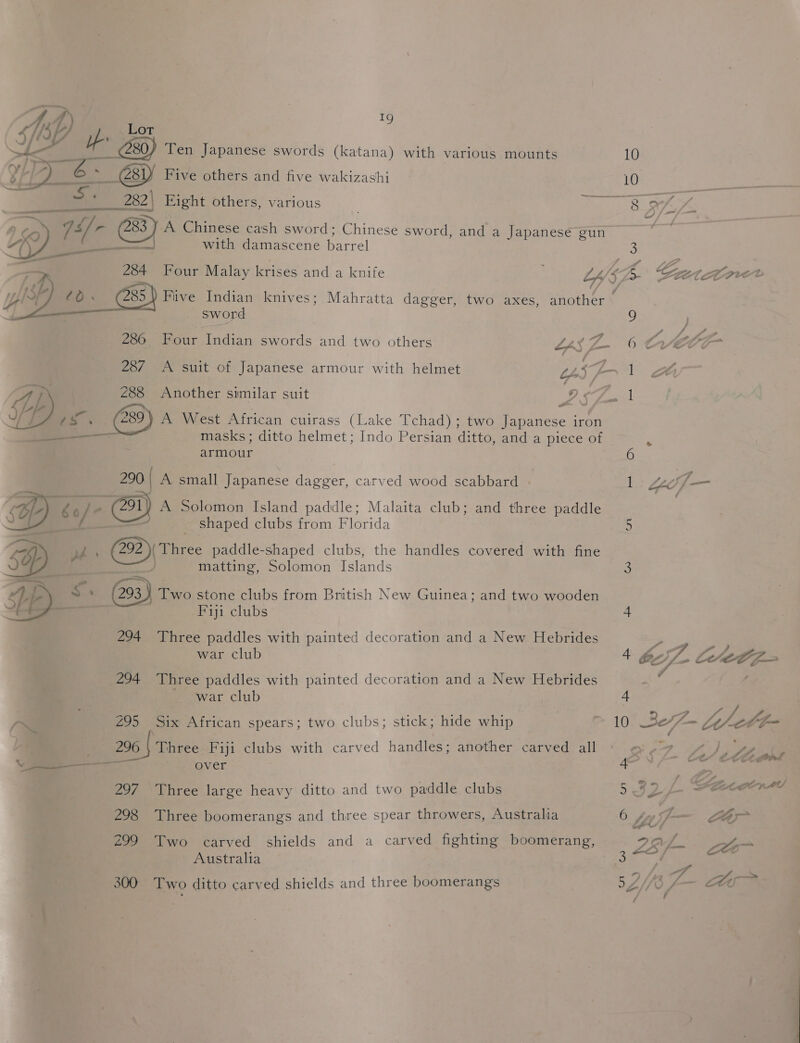 19
Lot
280 Ten Japanese swords (katana) with various mounts 10
6 - 281 Five others and five wakizashi 10
5 - 282 Eight others, various 8
283 A Chinese cash sword; Chinese sword, and a Japanese gun
with damascene barrel 3
284 Four Malay krises and a knife 5
285 Five Indian knives; Mahratta dagger, two axes, another
sword 9
286 Four Indian swords and two others 6
287 A suit of Japanese armour with helmet 1
288 Another similar suit 1
289 A West African cuirass (Lake Tchad); two Japanese iron
masks; ditto helmet; Indo Persian ditto, and a piece of
armour 6
290 A small Japanese dagger, carved wood scabbard 1
291 A Solomon Island paddle; Malaita club; and three paddle
shaped clubs from Florida 5
292 Three paddle-shaped clubs, the handles covered with fine
matting, Solomon Islands 3
293 Two stone clubs from British New Guinea; and two wooden
Fiji clubs 4
294 Three paddles with painted decoration and a New Hebrides
war club 4
294 Three paddles with painted decoration and a New Hebrides
war club 4
295 Six African spears; two clubs; stick; hide whip 10
296 Three Fiji clubs with carved handles; another carved all
over 4
297 Three large heavy ditto and two paddle clubs 5
298 Three boomerangs and three spear throwers, Australia 6
299 Two carved shields and a carved fighting boomerang,
Australia 3
300 Two ditto carved shields and three boomerangs 5